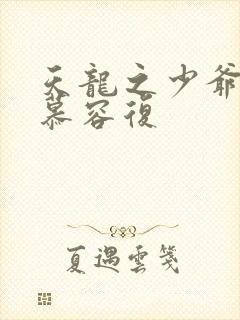 天龍之少爺
慕容復
夏遇雲箋